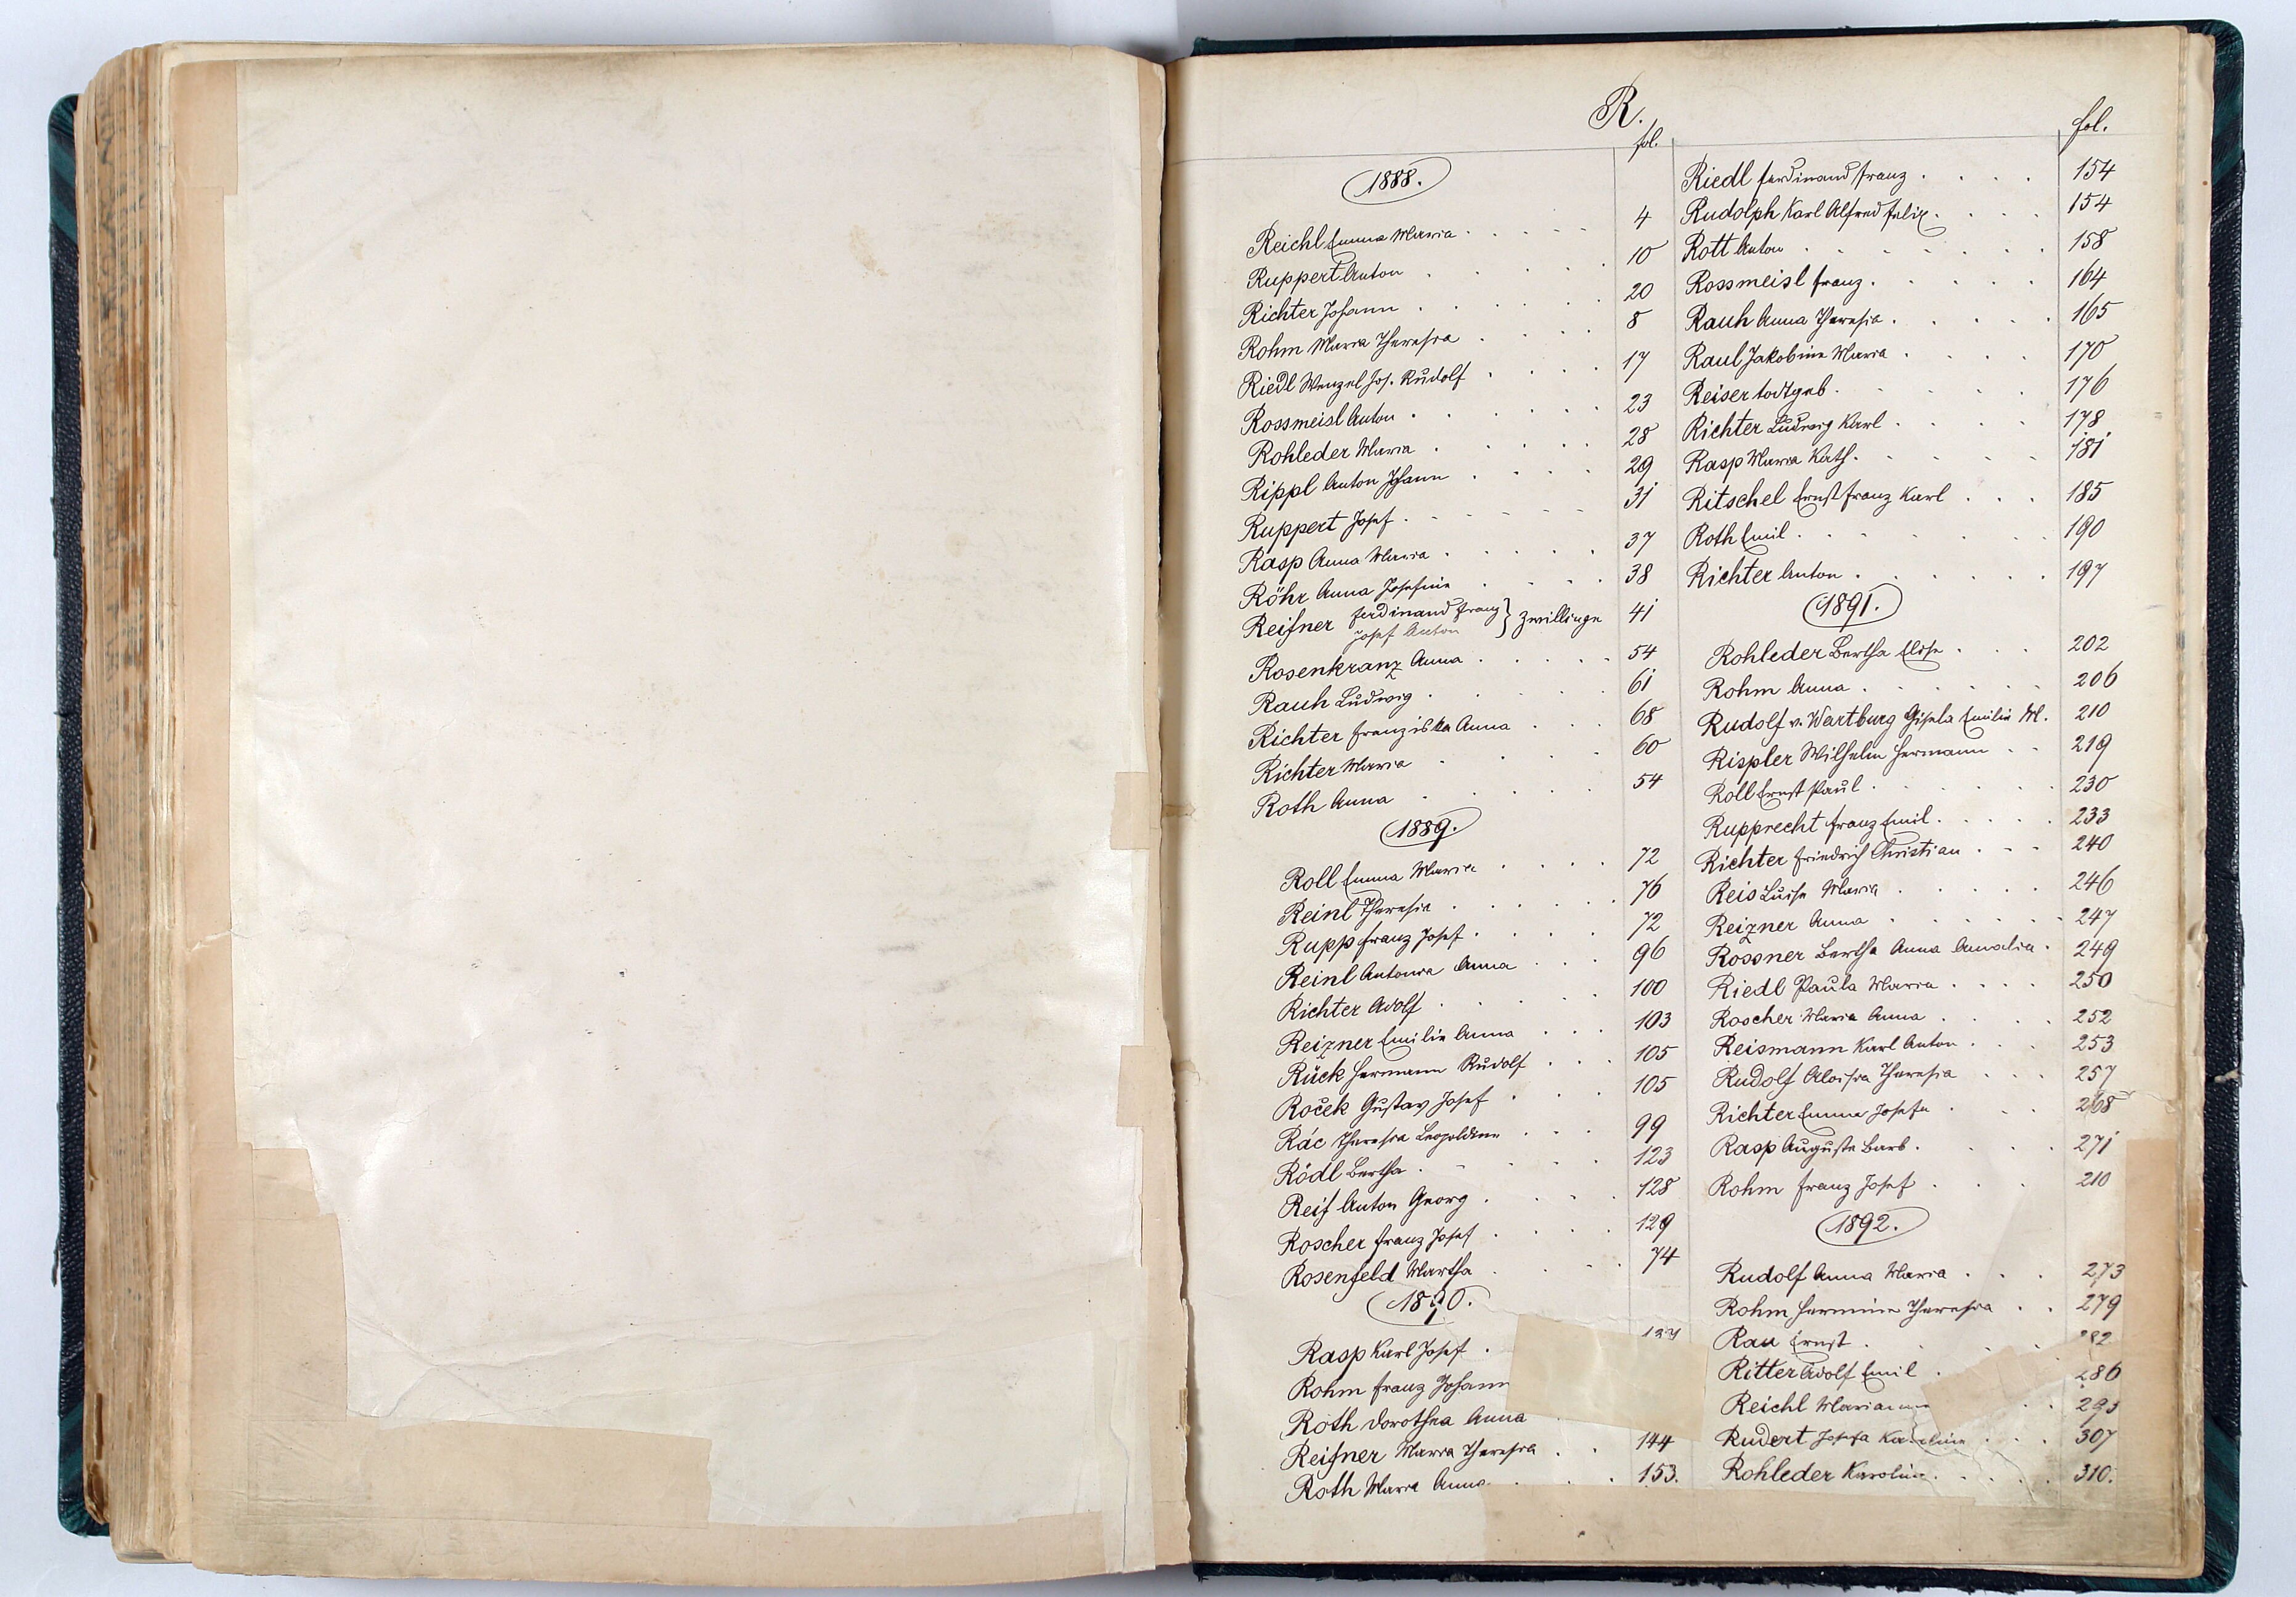 R.
fol.
fol.
1888.
Reichl Emma Maria . . . . . 4
Ruppert Anton . . . . . 10
Richter Johann . . . . . 20
Rohm Maria Theresia . . . . 8
Riedl Wenzel Jos. Rudolf . . . . 17
Rossmeisl Anton . . . . . . 23
Rohleder Maria . . . . . 28
Rippl Anton Johann . . . . 29
Ruppert Josef . . . . . . 31
Rasp Anna Maria . . . . . 37
Röhr Anna Josefine . . . . 38
Reifner Ferdinand Franz } Zwillinge 41
Josef Anton
Rosenkranz Anna . . . . . 54
Rauh Ludwig . . . . . . 61
Richter Franziska Anna . . . 68
Richter Maria . . . . . 60
Roth Anna . . . . . 54
1889.
Roll Emma Maria . . . . 72
Reinl Theresia . . . . . . 76
Rupp Franz Josef . . . . 72
Reinl Antonia Anna . . . 96
Richter Adolf . . . . . 100
Reizner Emilie Anna . . . 103
Rück Hermann Rudolf . . . 105
Roček Gustav Josef . . . . 105
Rác Theresia Leopoldine . . . 99
Rödl Bertha . . . . . 123
Reif Anton Georg . . . . 128
Roscher Franz Josef . . . . 129
Rosenfeld Martha . . . . 74
1890.
Rasp Karl Josef .
Rohm Franz Johann
Roth Dorothea Anna
Reifner Maria Theresia . . 144
Roth Maria Anna . . . 153.
Riedl Ferdinand Franz . . . . 154
Rudolph Karl Alfred Felix . . . . 154
Rott Anton . . . . . . . 158
Rossmeisl Franz . . . . . 164
Rauh Anna Theresia . . . . . 165
Raul Jakobine Maria . . . . 170
Reiser todtgeb. . . . . . 176
Richter Ludwig Karl . . . . 178
Rasp Maria Kath. . . . . . 181
Ritschel Ernst Franz Karl . . . 185
Roth Emil . . . . . . . 190
Richter Anton . . . . . . 197
1891.
Rohleder Bertha Elise . . . 202
Rohm Anna . . . . . . 206
Rudolf v. Wartburg Gisela Emilie M. 210
Rispler Wilhelm Hermann . . 219
Roll Ernst Paul . . . . . . 230
Rupprecht Franz Emil . . . . . 233
Richter Friedrich Christian . . . 240
Reis Luise Maria . . . . . 246
Reizner Anna . . . . . . 247
Rossner Bertha Anna Amalia . 249
Riedl Paula Maria . . . . 250
Roscher Maria Anna . . . . 252
Reismann Karl Anton . . . 253
Rudolf Aloisia Theresia . . . 257
Richter Emma Josefa . . . 268
Rasp Auguste Barb. . . . . 271
Rohm Franz Josef . . . 210
1892.
Rudolf Anna Maria . . . 273
Rohm Hermine Theresia . . 279
Rau Ernst . . . . . 282
Ritter Adolf Emil . 286
Reichl Marianne . .
Rudert Josefa Karoline . . . 307
Rohleder Karoline . . . . . 310.